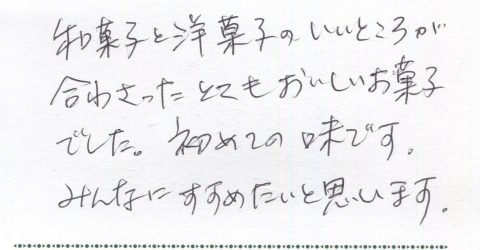 和菓子と洋菓子のいいところが
合わさったとてもおいしいお菓子
でした。初めての味です。
みんなにすすめたいと思います。